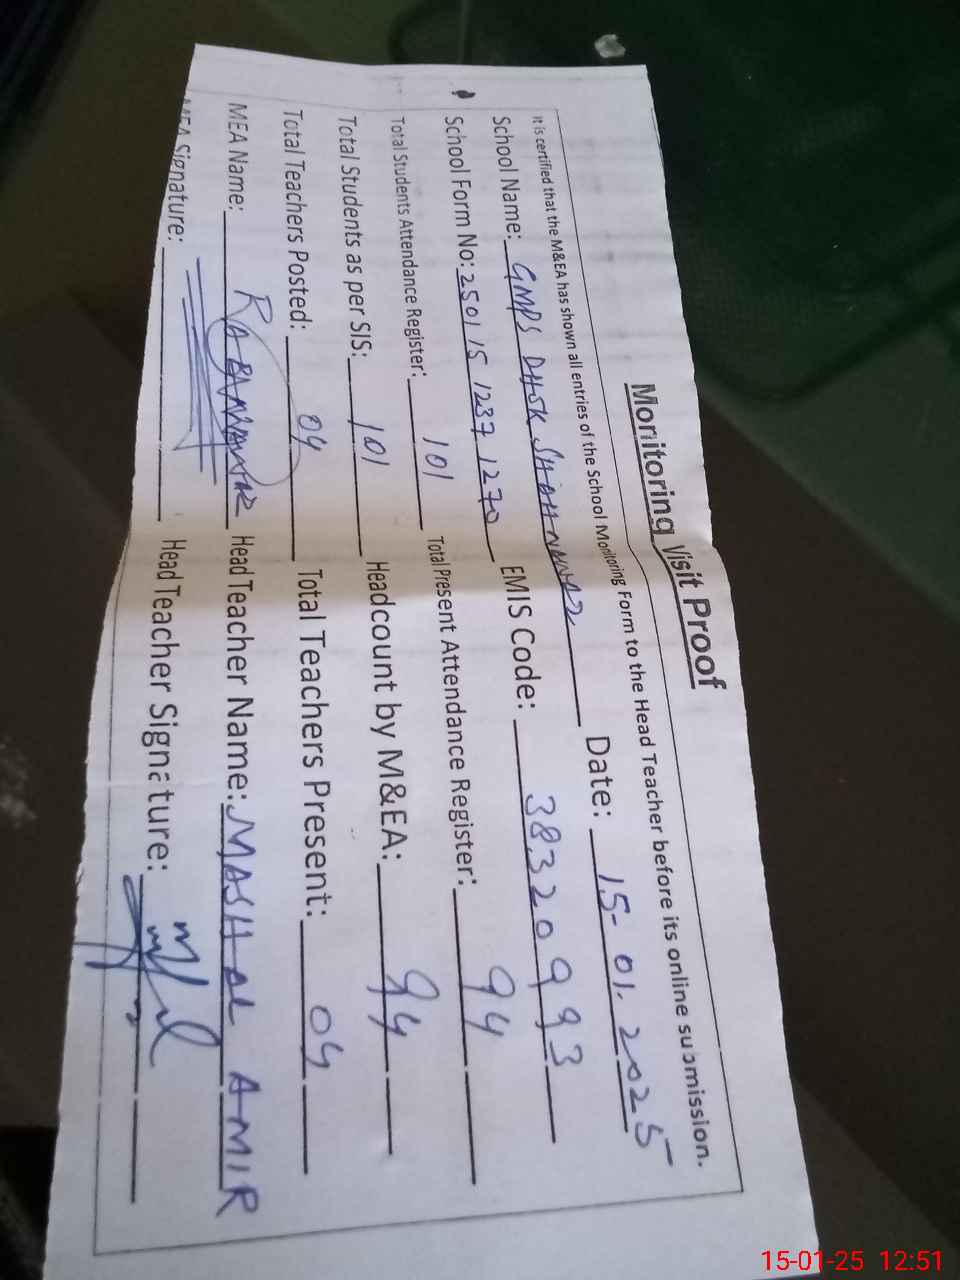 Monitoring Visit Proof
It is certified that the M&EA has shown all entries of the School Monitoring Form to the Head Teacher before its online submission.
School Name: GMPS DHOK SHAH NAWAZ Date: 15-01-2025
School Form No: 25011512371270 EMIS Code: 38320993
Total Students Attendance Register: 101 Total Present Attendance Register: 94
Total Students as per SIS: 101 Headcount by M&EA: 94
Total Teachers Posted: 04 Total Teachers Present: 04
MEA Name: Head Teacher Name: MASHAL AMIR
MEA Signature: Head Teacher Signature:
15-01-25 12:51